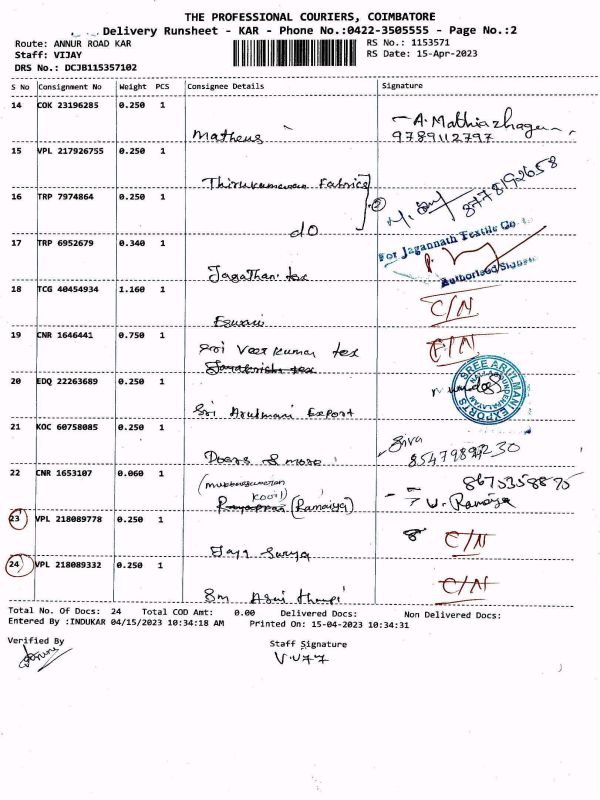 THE PROFESSIONAL COURIERS, COIMBATORE
Delivery Runsheet - KAR - Phone No.:0422-3505555 - Page No.:2
Route: ANNUR ROAD KAR
RS No.: 1153571
Staff: VIJAY
RS Date: 15-Apr-2023
DRS No.: DCJB115357102
S No Consignment No Weight PCS Consignee Details Signature
14 COK 23196285 0.250 1
Matheus
A. Mathiazhagan
9789112797
15 VPL 217926755 0.250 1
Thirukumaran Fabrics
8778192658
16 TRP 7974864 0.250 1
do
2
17 TRP 6952679 0.340 1
Jagathani tex
For Jagannath Textile Co
Authorised
18 TCG 40454934 1.160 1
Eswari
C/N
19 CNR 1646441 0.750 1
Sri Veer Kumar tex
C/N
20 EDQ 22263689 0.250 1
Sri Arulmani Export
SREE ARULMANI EXPORTS
21 KOC 60758085 0.250 1
Doers & more
Siva
22 CNR 1653107 0.060 1
Kooil)
(Ramaiya)
U. Ramaiya
23 VPL 218089778 0.250 1
Jaya Surya
C/N
24 VPL 218089332 0.250 1
Sm
C/N
Total No. Of Docs: 24 Total COD Amt: 0.00 Delivered Docs: Non Delivered Docs:
Entered By :INDUKAR 04/15/2023 10:34:18 AM Printed On: 15-04-2023 10:34:31
Verified By
Staff Signature